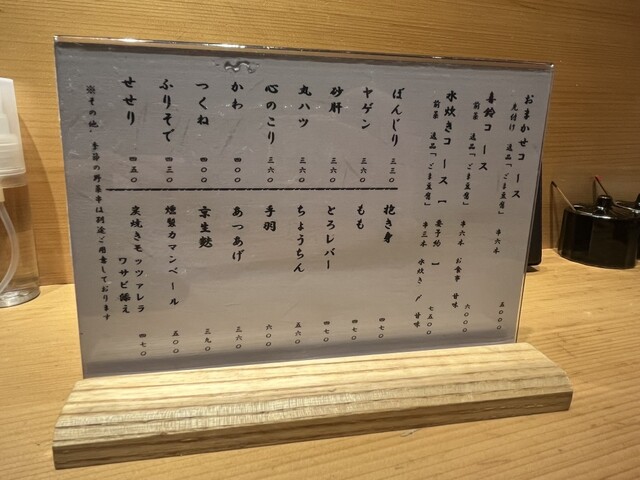 おまかせコース 五〇〇〇
先付け 逸品「ごま豆腐」 串六本
喜鈴コース 六〇〇〇
前菜 逸品「ごま豆腐」 串六本 お食事 甘味
水炊きコース【要予約】 七五〇〇
前菜 逸品「ごま豆腐」 串三本 水炊き 〆 甘味
ぼんじり 三三〇
ヤゲン 三六〇
砂肝 三六〇
丸ハツ 三六〇
心のこり 三六〇
かわ 四〇〇
つくね 四〇〇
ふりそで 四三〇
せせり 四五〇
抱き身 四七〇
もも 四七〇
とろレバー 四七〇
ちょうちん 五六〇
手羽 六〇〇
あつあげ 三六〇
京生麩 三九〇
燻製カマンベール 五〇〇
炭焼きモッツァレラ
ワサビ添え 四七〇
※その他、季節の野菜串は別途ご用意しております